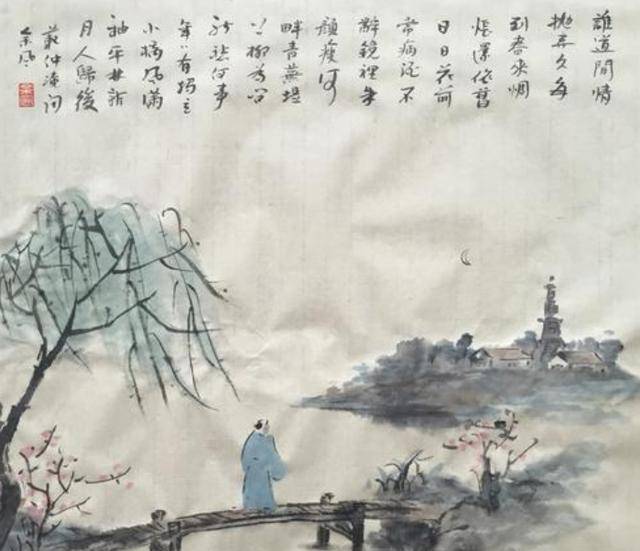 誰道閒情
抛弃久每
到春來惆
悵還依舊
日日花前
常病酒不
辭鏡裡朱
顏瘦河
畔青蕪堤
上柳為問
新愁何事
年〻有獨立
小橋風滿
袖平林新
月人歸後